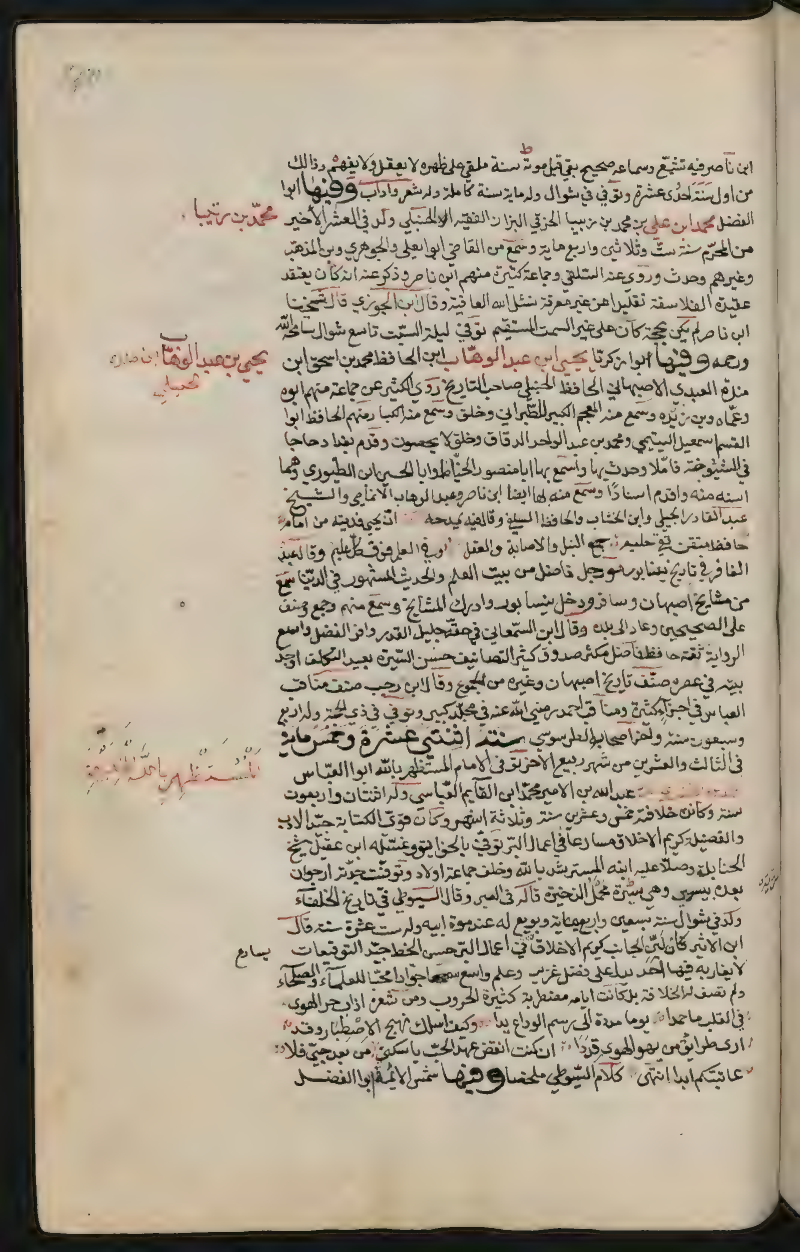 ابن ناصر فيه تشيع وسماعه صحيح بقي قبل موته سنة ملقى على ظهره لا يعقل ولا يفهم وذالك
من اول سنة احدى عشرة وتوفي في شوال وله ماية سنة كاملة وله شعر واداب وفيها ابوا
الفضل محمد ابن علي بن محمد بن زبيبا الخرقي البزاز الفقيه الحنبلي ولد في العشر الأخير
محمد بن زبيبا
من المحرم سنة ست وثلاثين واربع ماية وسمع من القاضي ابوا يعلى والجوهري وبن المذهب
وغيرهم وحدث وروى عنه السلفي وجماعة كثيرة منهم ابن ناصر وذكر عنه انه كان يعتقد
عقيدة الفلاسفة تقليدا عن غير معرفة نسئل الله العافية وقال ابن الجوزي قال شيخنا
ابن ناصر لم يكن بحجة كان على غير السمت المستقيم توفي ليلة السبت تاسع شوال سامحه الله
ورحمه وفيها ابوا زكريا يحيى ابن عبد الوهاب ابن الحافظ محمد بن اسحق ابن
يحيى بن عبد الوهاب ابن منده
حنبلي
مندة العبدي الاصبهاني الحافظ الحنبلي صاحب التاريخ روى الكثير عن جماعة منهم ابوه
وعماه وبن ريذه وسمع منه المعجم الكبير للطبراني وخلق وسمع منه الكبار منهم الحافظ ابوا
القسم اسمعيل التيمي ومحمد بن عبد الواحد الدقاق وخلق لا يحصون وقدم بغداد حاجا
في الشيخوخة فاملا وحدث بها واسمع بها ابا منصور الخياط وابا الحسين ابن الطيوري وهما
اسن منه واقدم اسنادا وسمع منه بها ايضا ابن ناصر وعبد الوهاب الانماطي والشيخ
عبد القادر الجيلي وابن الخشاب والحافظ السلفي وقال فيه يمدحه ان يحيى فديته من امام
حافظ متقن تقي حليم جمع النبل والاصابة والعقل وفي العلم فوق كل عليم وقال عبد
الغافر في تاريخ نيسابور هو رجل فاضل من بيت العلم والحديث المشهور في الدنيا سمع
من مشايخ اصبهان وسافر ودخل نيسابور وادرك المشايخ وسمع منهم وجمع وصنف
على الصحيحين وعاد الى بلده وقال ابن السمعاني في حقه جليل القدر وافر الفضل واسع
الرواية ثقة حافظ فاضل مكثر صدوق كثير التصانيف حسن السيرة بعيد التكلف اوحد
بيته في عصره صنف تاريخ اصبهان وغيره من الجموع وقال ابن رجب صنف مناقب
العباس في اجزاء كثيرة ومناقب احمد رضي الله عنه في مجلد كبير وتوفي في ذي الحجة وله اربع
وسبعون سنة واخر اصحابه الطرسوسي سنة اثنتي عشرة وخمس ماية
في الثالث والعشرين من شهر ربيع الاخر توفي الامام المستظهر بالله ابوا العباس
المستظهر بالله
عبد الله بن الامير محمد ابن القايم العباسي وله اثنتان واربعون
سنة وكانت خلافته خمس وعشرين سنة وثلاثة اشهر وكان قوي الكتابة جيد الادب
والفضيلة كريم الاخلاق مسارعا في اعمال البر توفي بالخوانيق وغسله ابن عقيل شيخ
الحنابلة وصلا عليه ابنه المسترشد بالله وخلف جماعة اولاد وتوفيت جدته ارجوان
بعده بيسير وهي سرية محمد الذخيرة قاله في العبر وقال السيوطي في تاريخ الخلفاء
ولد في شوال سنة سبعين واربعماية وبويع له عند موت ابيه وله ست عشرة سنة قال
ابن الاثير كان لين الجانب كريم الاخلاق في اعمال البر حسن الخط جيد التوقيعات
يسارع
لا يقاربه فيها احد يدل على فضل غزير وعلم واسع سمحا جوادا محبا للعلماء والصلحاء
ولم تصف له الخلافة بل كانت ايامه مضطربة كثيرة الحروب ومن شعره اذاب حر الهوى
في القلب ما جمدا يوما مددت الى رسم الوداع يدا وكيف اسلك نهج الاصطبار وقد
ارى طرايق من يهوى الهوى قددا ان كنت انقض عهد الحب يا سكني من بعد حبي فلا
عاينتكم ابدا انتهى كلام السيوطي ملخصا وفيها شمس الائمة ابوا الفضل